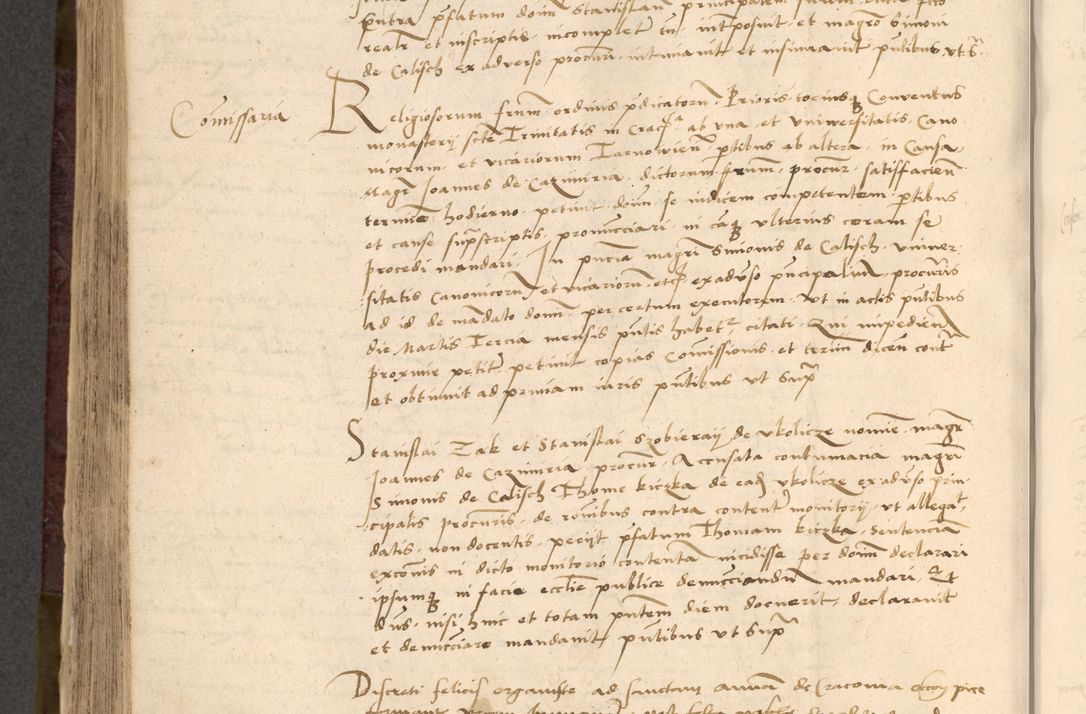 pntra pfatum dnm Stanislaum principalem
realr et inscriptis incomplet in interposuit et magro Simoni
de Calisch ex adverso procuri intimavit et insinuavit pntibus ut s.
Comissaria
Religiosorum frum ordinis pdicatorum Prioris totiusq Conventus
monasterij scte Trinitatis in Crac. ab una et universitatis Cano
nicorum et vicariorum Tarnowien ptibus ab altera in Causa
Magr Joannes de Cazimiria dictorum frum procur satisfacien
termino hodierno petiuit dnm se iudicem competentem ptibus
et cause supscriptis pronunciari in eaq ulterius coram se
procedi mandari In pncia magri Simonis de Calisch univer
sitatis Canonicorum et vicariorum etc ex adverso pncipalium procuris
ad id de mandato domini per certum executorem ut in actis pntibus
die Martis Tercia mensis pntis habetr citati Qui impedien
proxime petit petiuit copias Comissionis et termin dicen contr
et obtinuit ad primam iuris pntibus ut Supr
Stanislai Zak et Stanislai Szobieraij de Vkolicze nomine magr
Joannes de Cazimiria procur Accusata contumacia magri
Simonis de Calisch Thome kiczka de ead Vkolicze ex adverso prin
cipalis procuris de ronibus contra content monitorij ut allega
datis non docentis peciit pfatum Thomam kiczka Sententiam
exconis in dicto monitorio contentam incidisse per dnm declarari
ipsumq in facie ecclie publice denunciandum mandari Et
dns nisi hinc et totam pntem diem docuerit declaravit
et denunciare mandavit pntibus ut Supr
Discreti felicis organiste ad sanctam annam de Cracovia